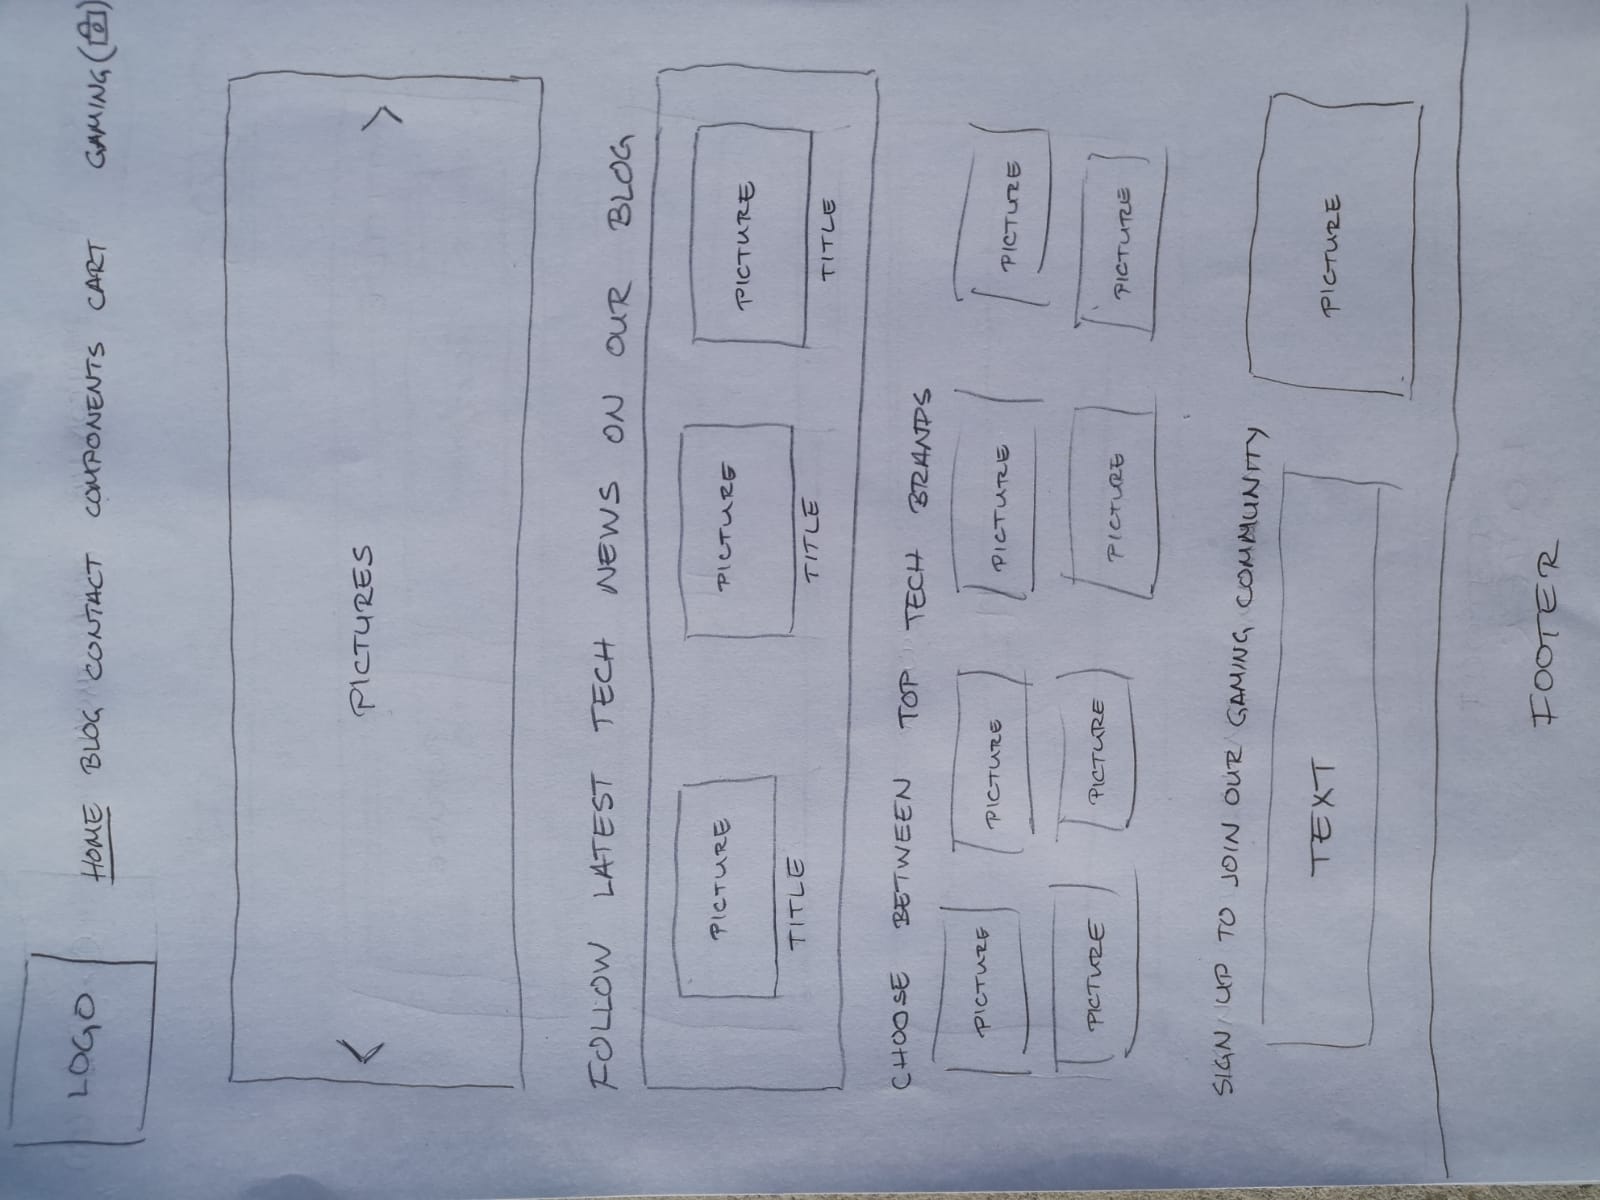 LOGO
HOME BLOG CONTACT COMPONENTS CART GAMING
PICTURES
FOLLOW LATEST TECH NEWS ON OUR BLOG
PICTURE PICTURE PICTURE
TITLE TITLE TITLE
CHOOSE BETWEEN TOP TECH BRANDS
PICTURE PICTURE PICTURE PICTURE
PICTURE PICTURE PICTURE PICTURE
SIGN UP TO JOIN OUR GAMING COMMUNITY
TEXT PICTURE
FOOTER